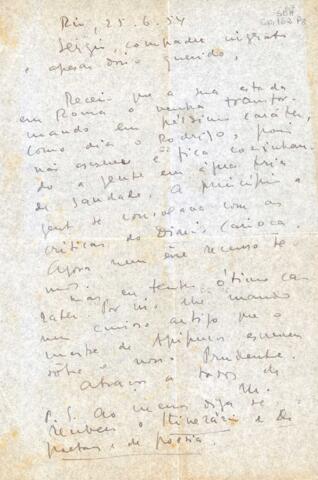 Rio, 25.6.54
Sergio, compadre ingrato
e apesar disso querido,
Receio que a sua estada
em Roma o venha transfor-
mando em péssimo caráter,
como dizia o Rodrigo, pois
não escreve e fica cozinhan-
do a gente em água fria
de saudade. A princípio a
gente se consolava com as
críticas do Diário Carioca.
Agora nem esse recurso te-
mos.
Mas eu tenho ótimo ca-
ráter. Por isso lhe mando
um curioso artigo que o
mestre de Apipucos escreveu
sobre o nosso Prudente.
Abraços a todos do
M.
P.S. Ao menos diga se
recebeu o Itinerário e De
poetas e de poesia.